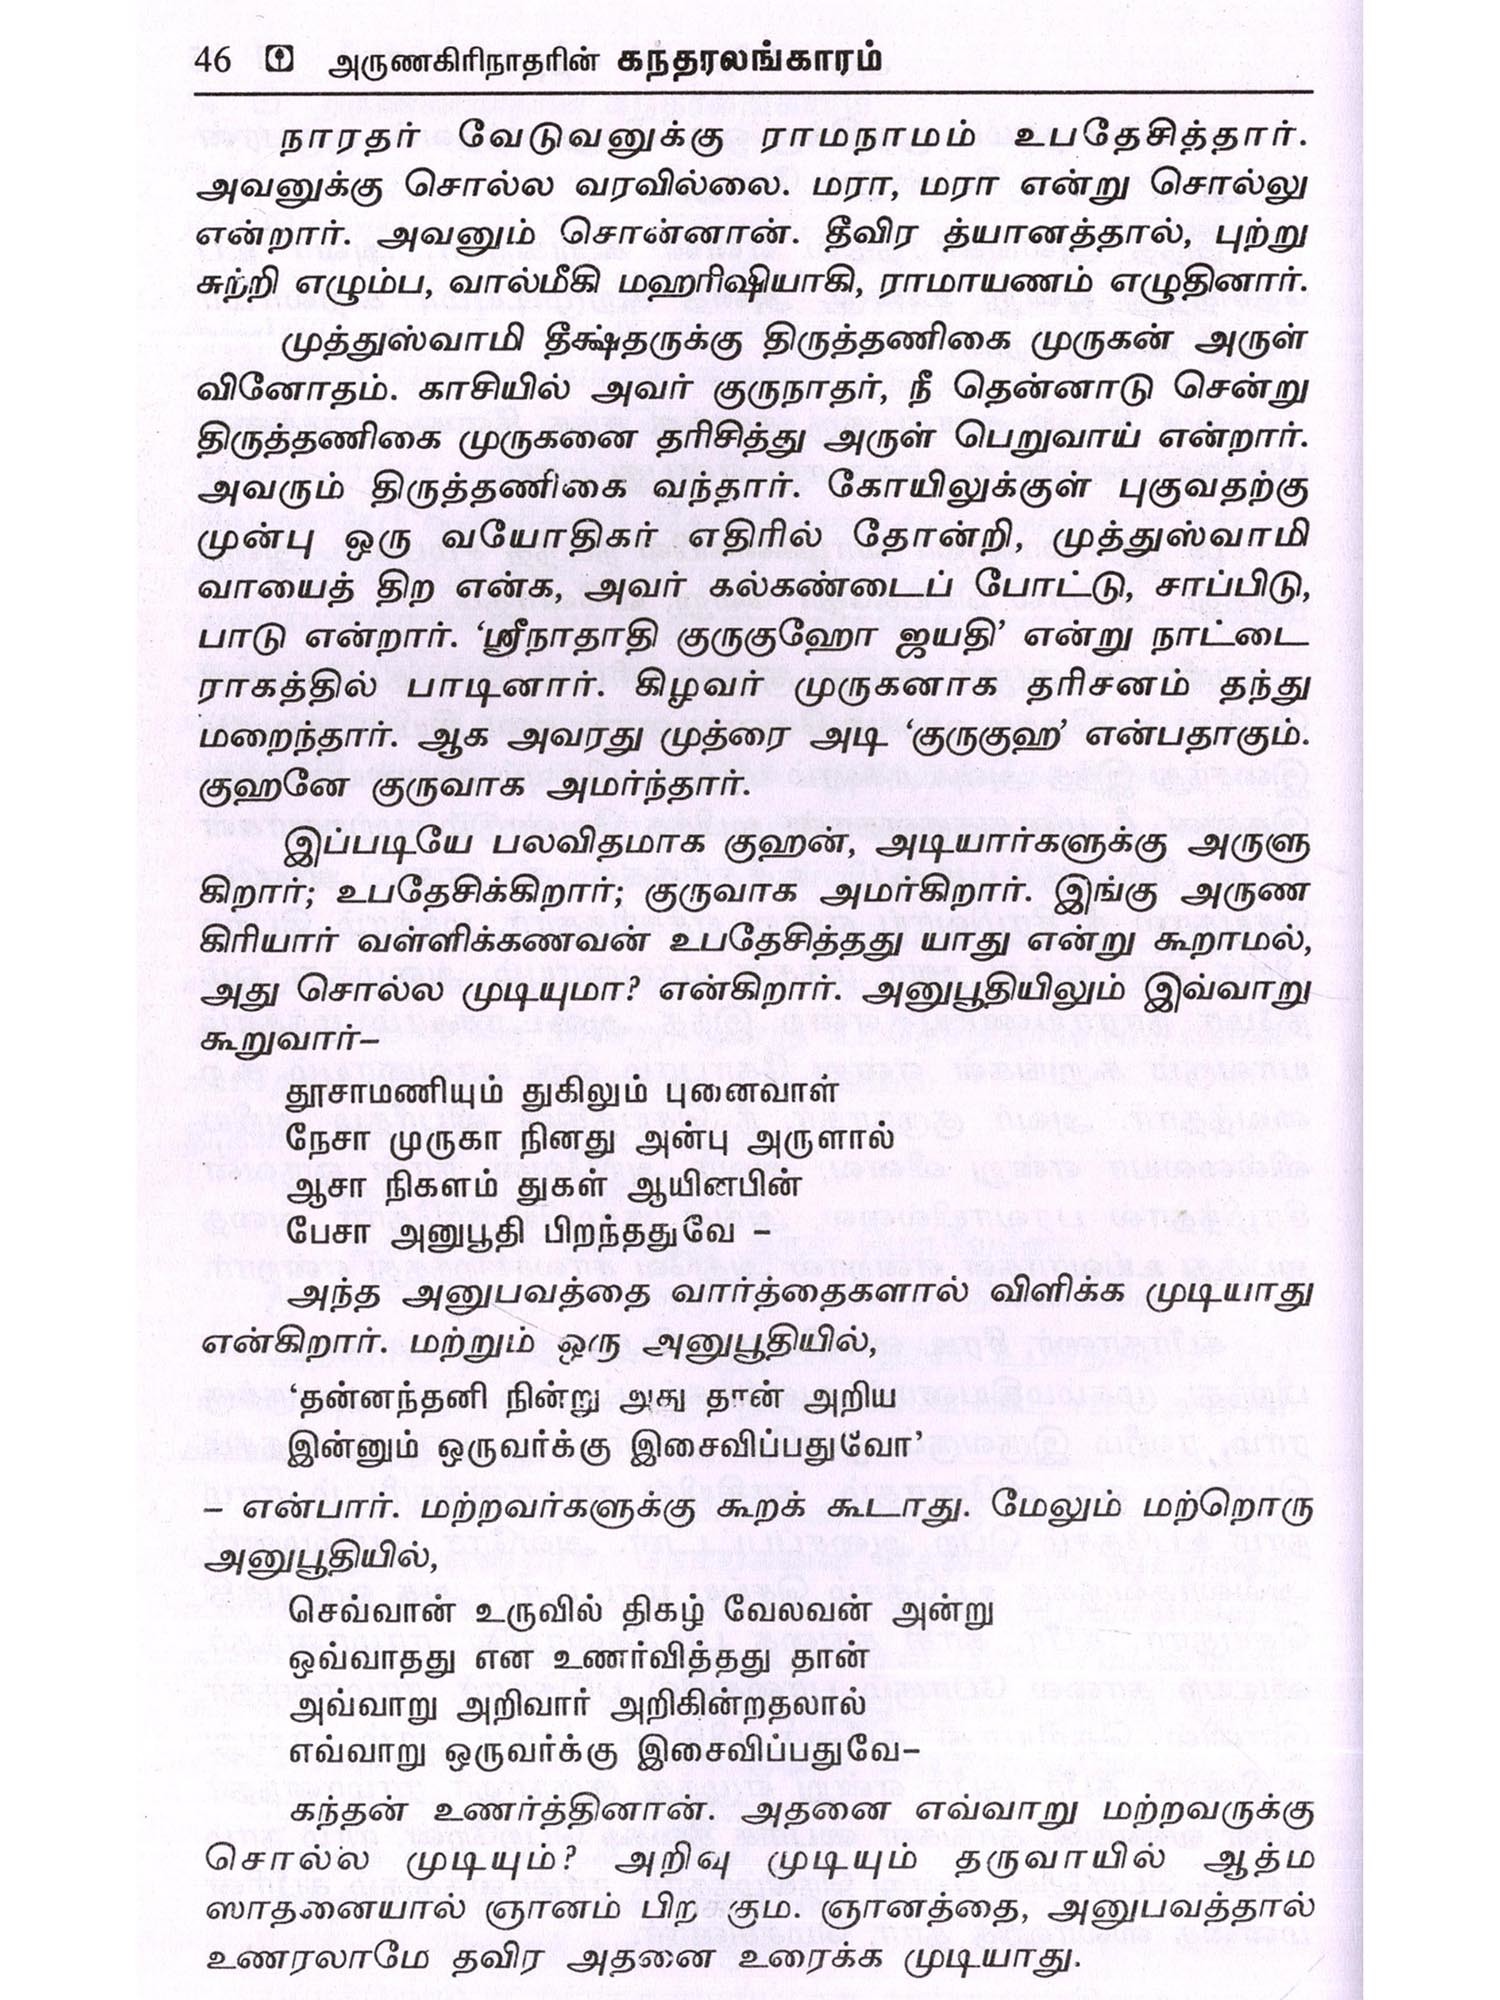 46 அருணகிரிநாதரின் கந்தரலங்காரம்
நாரதர் வேடுவனுக்கு ராமநாமம் உபதேசித்தார்.
அவனுக்கு சொல்ல வரவில்லை. மரா, மரா என்று சொல்லு
என்றார். அவனும் சொன்னான். தீவிர த்யானத்தால், புற்று
சுற்றி எழும்ப, வால்மீகி மஹரிஷியாகி, ராமாயணம் எழுதினார்.
முத்துஸ்வாமி தீக்ஷதருக்கு திருத்தணிகை முருகன் அருள்
வினோதம். காசியில் அவர் குருநாதர், நீ தென்னாடு சென்று
திருத்தணிகை முருகனை தரிசித்து அருள் பெறுவாய் என்றார்.
அவரும் திருத்தணிகை வந்தார். கோயிலுக்குள் புகுவதற்கு
முன்பு ஒரு வயோதிகர் எதிரில் தோன்றி, முத்துஸ்வாமி
வாயைத் திற என்க, அவர் கல்கண்டைப் போட்டு, சாப்பிடு,
பாடு என்றார். ‘ஸ்ரீநாதாதி குருகுஹோ ஜயதி’ என்று நாட்டை
ராகத்தில் பாடினார். கிழவர் முருகனாக தரிசனம் தந்து
மறைந்தார். ஆக அவரது முத்ரை அடி ‘குருகுஹ’ என்பதாகும்.
குஹனே குருவாக அமர்ந்தார்.
இப்படியே பலவிதமாக குஹன், அடியார்களுக்கு அருளு
கிறார்; உபதேசிக்கிறார்; குருவாக அமர்கிறார். இங்கு அருண
கிரியார் வள்ளிக்கணவன் உபதேசித்தது யாது என்று கூறாமல்,
அது சொல்ல முடியுமா? என்கிறார். அனுபூதியிலும் இவ்வாறு
கூறுவார்–
தூசாமணியும் துகிலும் புனைவாள்
நேசா முருகா நினது அன்பு அருளால்
ஆசா நிகளம் துகள் ஆயினபின்
பேசா அனுபூதி பிறந்ததுவே –
அந்த அனுபவத்தை வார்த்தைகளால் விளிக்க முடியாது
என்கிறார். மற்றும் ஒரு அனுபூதியில்,
‘தன்னந்தனி நின்று அது தான் அறிய
இன்னும் ஒருவர்க்கு இசைவிப்பதுவோ’
– என்பார். மற்றவர்களுக்கு கூறக் கூடாது. மேலும் மற்றொரு
அனுபூதியில்,
செவ்வான் உருவில் திகழ் வேலவன் அன்று
ஒவ்வாதது என உணர்வித்தது தான்
அவ்வாறு அறிவார் அறிகின்றதலால்
எவ்வாறு ஒருவர்க்கு இசைவிப்பதுவே–
கந்தன் உணர்த்தினான். அதனை எவ்வாறு மற்றவருக்கு
சொல்ல முடியும்? அறிவு முடியும் தருவாயில் ஆத்ம
ஸாதனையால் ஞானம் பிறக்கும. ஞானத்தை, அனுபவத்தால்
உணரலாமே தவிர அதனை உரைக்க முடியாது.